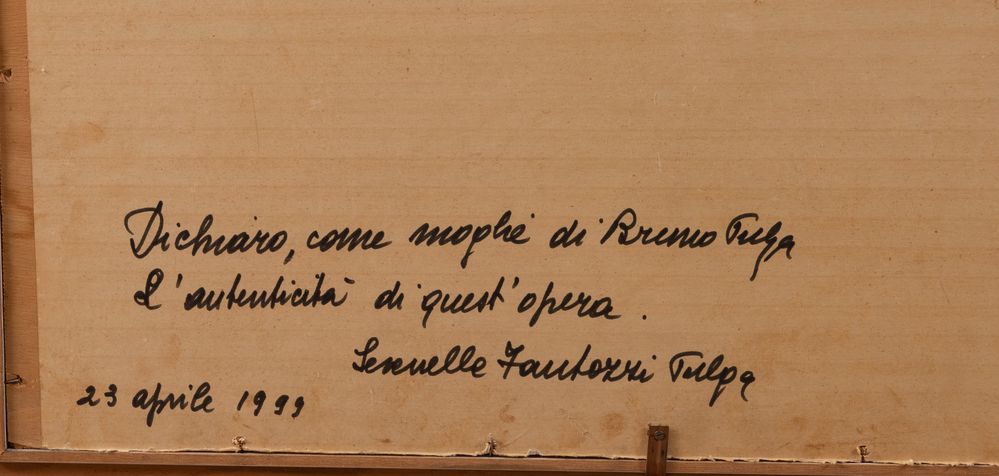 Dichiaro, come moglie di Bruno Pulga
l'autenticità di quest'opera.
Fantozzi Pulga
23 aprile 1999